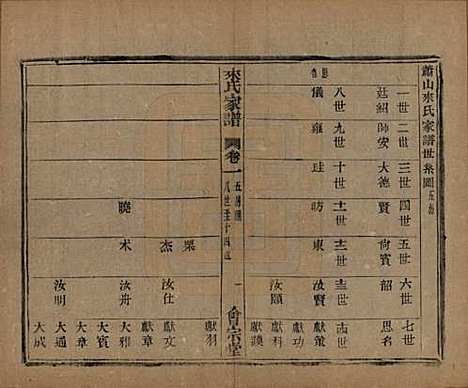 蕭山來氏家譜世系圖
一世 二世 三世 四世 五世 六世 七世
廷紹 師安 大德 賢 尙賓 韶 思名
八世 九世 十世 十一世 十二世 十三世 十四世
儀 雍 珪 昉 東 汝賢 獻策
汝頤 獻科
獻謨
來氏家譜
卷一
八世至十四世
一
會宗堂
獻羽
栗 杰 汝仕 獻文
獻章
曉 术 汝舟 大雅
大賓
大章
汝明 大通
大成